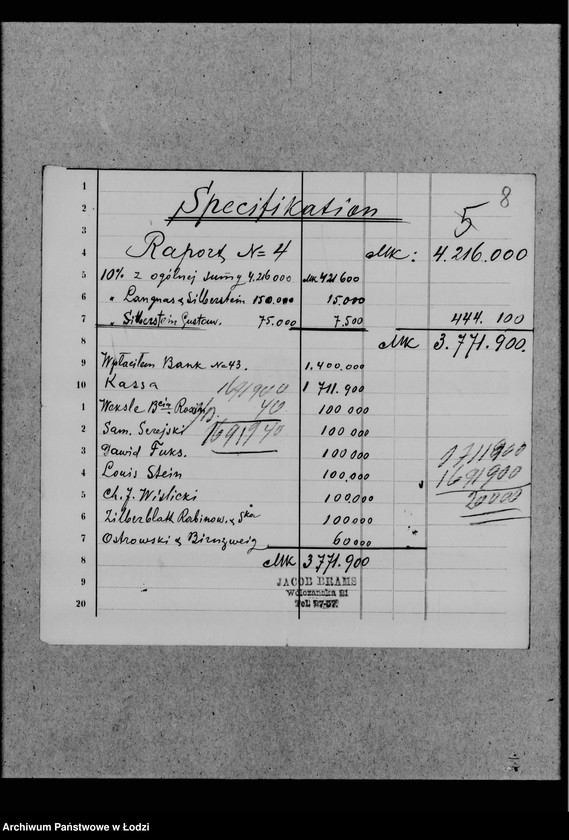 8
Specifikation
5
Raport, No 4 Mk: 4.216.000
10% z ogólnej sumy 4.216 000 Mk 421 600
" Langnas & Silberstein 150.000 15.000
" Silberstein Gustaw. 75.000 7.500 444.100
Mk 3.771.900.
Wpłaciłem Bank No 43. 1.400.000
Kassa 1 711.900
1691900
Weksle 100 000
40
Sam. Serejski 100 000
1691940
Dawid Fuks. 100 000
1711900
Louis Stein 100.000
1691900
Ch. J. Wislicki 100.000
20000
Zilberblatt Rabinow. & Ska 100000
Ostrowski & Birnzweig 60000
Mk 3.771.900
JACOB BRAMS
Wólczańska 21
Tel. 27-37.
1
2
3
4
5
6
7
8
9
10
1
2
3
4
5
6
7
8
9
20
Archiwum Państwowe w Łodzi